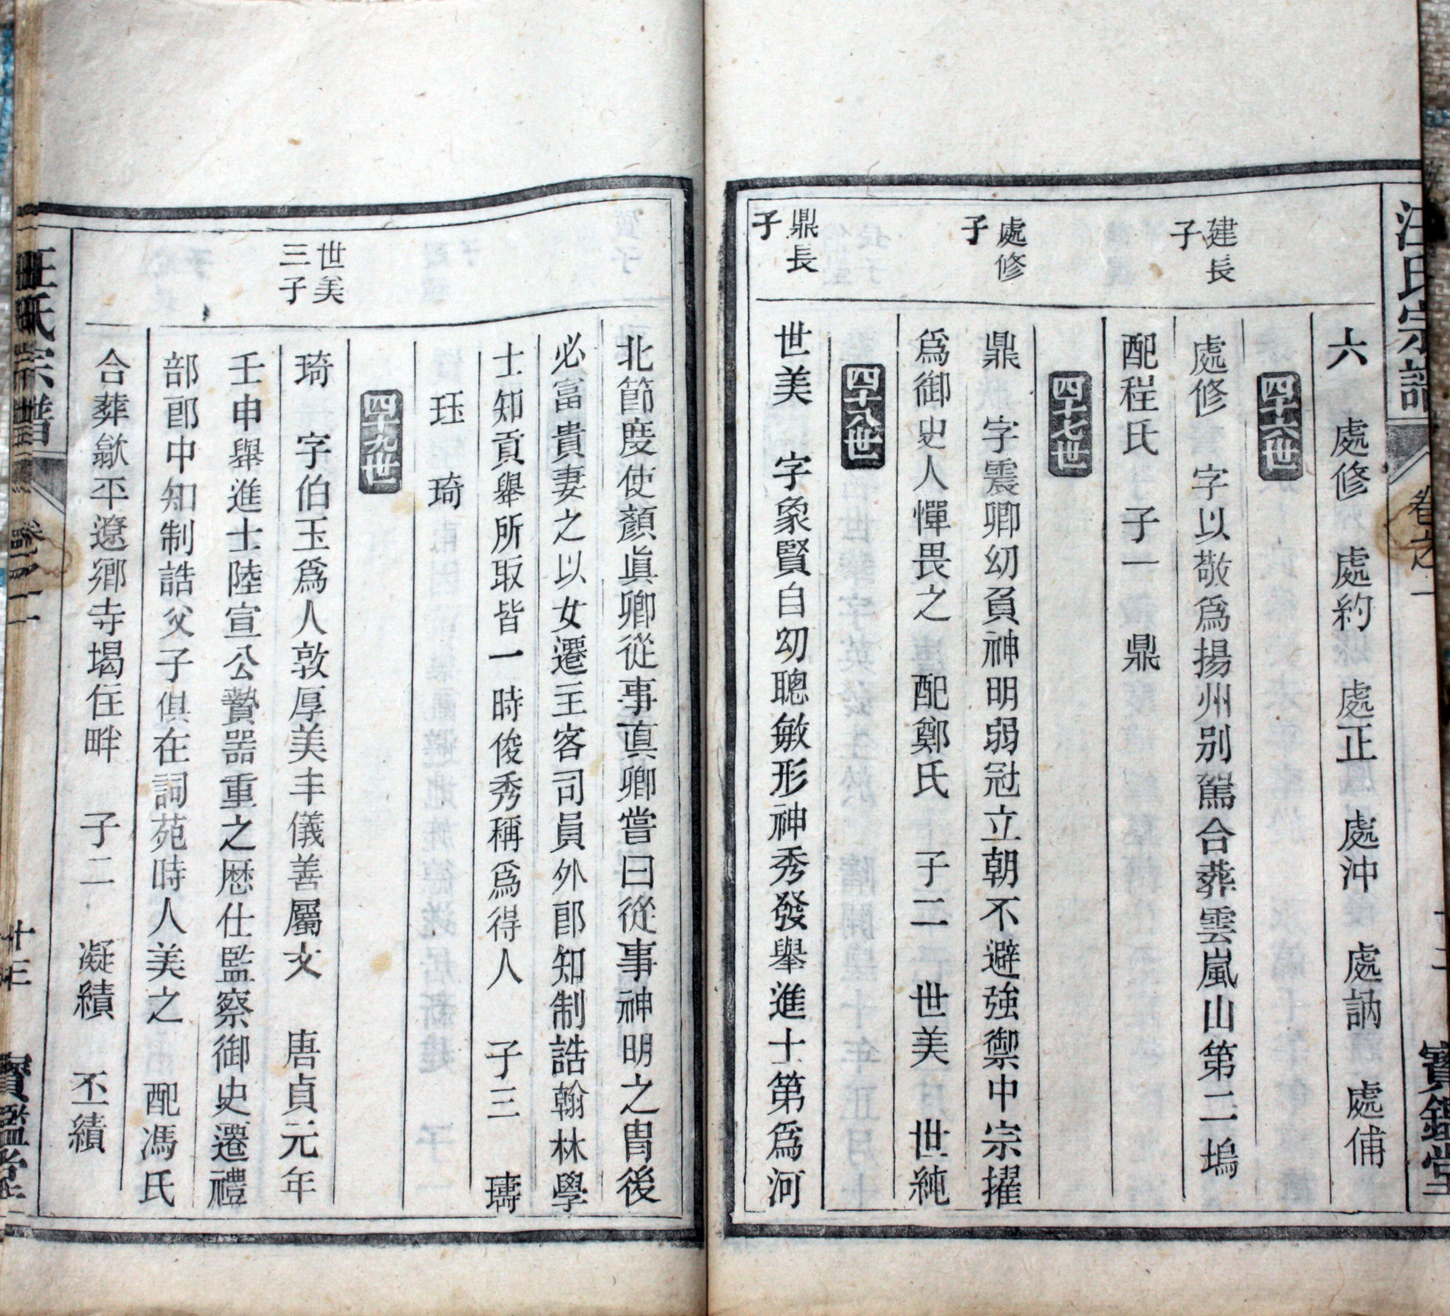 汪氏宗譜
卷之一
寶鑑堂
六 處修 處約 處正 處沖 處訥 處俌
四十六世
建長子
處修 字以敬爲揚州別駕合葬雲嵐山第二塢
配程氏 子一 鼎
四十七世
處修子
鼎 字震卿幼負神明弱冠立朝不避強禦中宗擢
爲御史人憚畏之 配鄭氏 子二 世美 世純
四十八世
鼎長子
世美 字象賢自幼聰敏形神秀發舉進士第爲河
北節度使顏眞卿從事眞卿嘗曰從事神明之胄後
必富貴妻之以女遷主客司員外郎知制誥翰林學
士知貢舉所取皆一時俊秀稱爲得人 子三 璹
珏 琦
四十九世
世美三子
琦 字伯玉爲人敦厚美丰儀善屬文 唐貞元年
壬申舉進士陸宣公贄器重之歷仕監察御史遷禮
部郎中知制誥父子俱在詞苑時人美之 配馮氏
合葬歙平遼鄉寺堨住畔 子二 凝績 丕績
汪氏宗譜
寶鑑堂